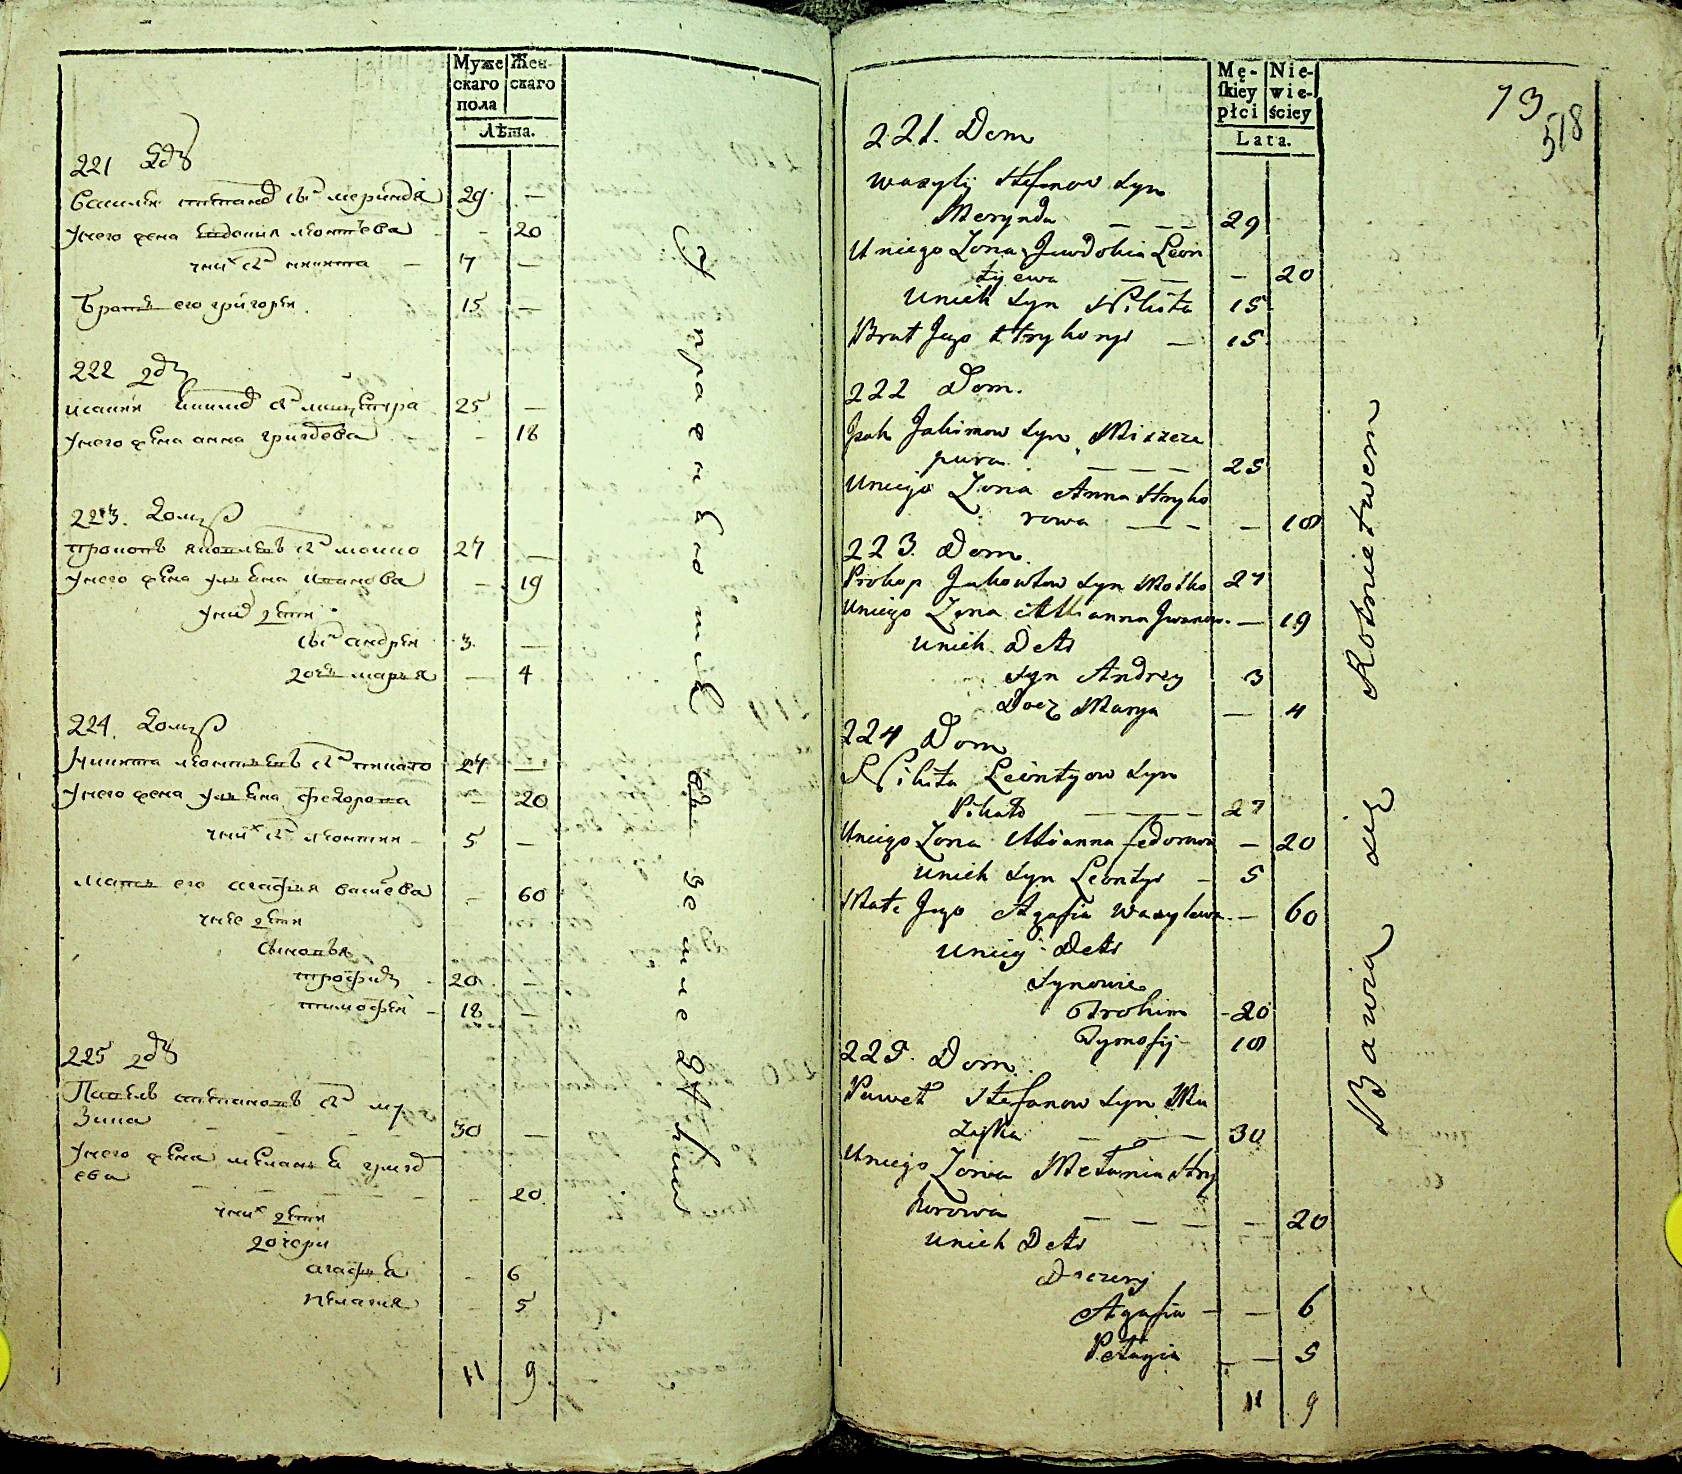 Муже
скаго
пола
Жен-
скаго
Лѣта.
221 дв
Василей Степанов сынъ Меринда 29 —
У него жена Евдокия Леонтьева — 20
у них сн Никита — 7 —
Братъ его Григорей 15 —
222 дв
Исакий сн 25 —
У него жена Анна Григорева — 18
223. Домъ
Прокопъ Яковлевъ сн Мошко 27 —
У него жена Ульяна Иванова — 19
у них дети
сн Андрей 3 —
дочь Марья — 4
224. Домъ
Никита Леонтьевъ сн Пикато 27 —
У него жена Ульяна Федорова — 20
у них сн Леонтий 5 —
Мать его Агафия Васильева — 60
у нее дети
сыновья
Трофим 20 —
Тимофей 18 —
225 дв
Павелъ Степановъ сн Му
зика — — — 30 —
У него жена Меланья Григор
ева — — — — 20
у них дети
дочери
Агафья — 6
Пелагия — 5
11 9
Упражняются в земледѣлии
Mę-
skiey
płci
Nie-
wie-
ściey
Lata.
73
518
221. Dom
Wasyly Stefanow Syn
Merynda — — — 29
U niego Zona Jewdokia Leon
tyjewa — — — 20
U nich Syn Nikita 15
Brat Jego Hryhory — 15
222 Dom.
Isak Jakimow Syn Miszcze
pura — — — 25
U niego Zona Anna Hryho
rowa — — — 18
223. Dom
Prokop Jakowlow Syn Mosko 27
U niego Zona Ulianna Jwanow. — 19
U nich Deti
Syn Andrey 3
Docz Marya — 4
224 Dom
Nikita Leontyow Syn
Pikato — — — 27
U niego Zona Ulianna Fedorow — 20
U nich Syn Leonty — 5
Mate Jego Agafia Wasylewa — 60
U niey Deti
Synowie
Trohim — 20
Tymofiy — 18
225. Dom
Paweł Stefanow Syn Mu
zyka — — 30
U niego Zona Melania Hry
horowa — — — — 20
U nich Deti
Doczery
Agafia — — 6
Pelagia — — 5
11 9
Bawia się Rolnictwem